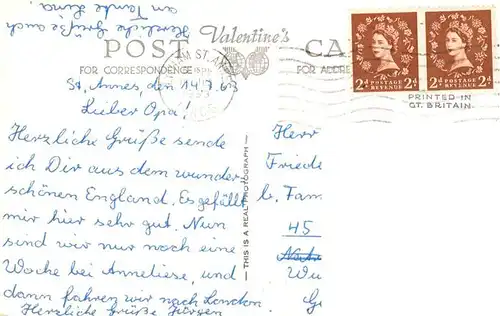 Herzliche Grüße auch
an Tante Lena!
POST Valentine's CA
FOR CORRESPONDENCE FOR ADDRE
2d POSTAGE REVENUE 2d
2d POSTAGE REVENUE 2d
PRINTED IN
GT. BRITAIN.
St. Annes, den 14.7.63
Lieber Opa!
Herzliche Grüße sende
ich Dir aus dem wunder
schönen England. Es gefällt
mir hier sehr gut. Nun
sind wir nur noch eine
Woche bei Anneliese, und
dann fahren wir nach London.
Herzliche Grüße Jürgen
THIS IS A REAL PHOTOGRAPH
Herr
Friede
b. Fam
45
Wu